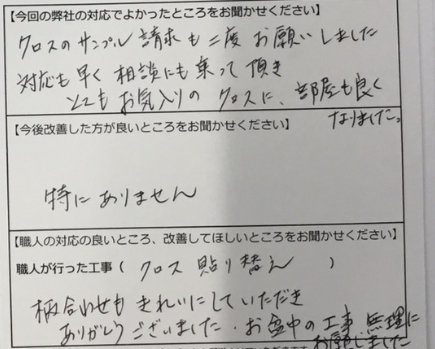 【今回の弊社の対応でよかったところをお聞かせください】
クロスのサンプル請求も二度お願いしました
対応も早く相談にも乗って頂き
とてもお気入りのクロスに、部屋も良く
なりました。
【今後改善した方が良いところをお聞かせください】
特にありません
【職人の対応の良いところ、改善してほしいところをお聞かせください】
職人が行った工事（クロス貼り替え）
柄合わせもきれいにしていただき
ありがとうございました．お盆中の工事無理に
お願いしました